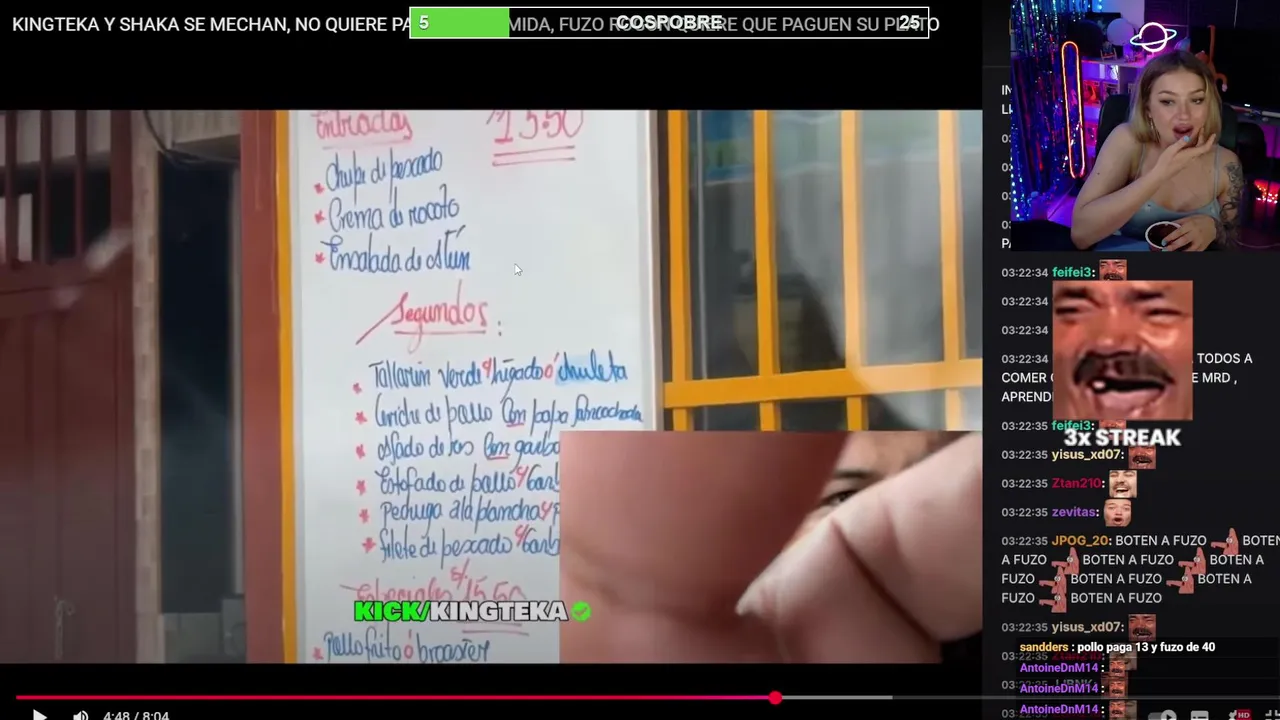 KINGTEKA Y SHAKA SE MECHAN, NO QUIERE PA
MIDA, FUZO
QUIERE QUE PAGUEN SU PLATO
5 COSPOBRE 25
Entradas 13.50
Chupe de pescado
Crema de rocoto
Ensalada de Atún
Segundos :
Tallarin verde c/ higado ó chuleta
de pollo con papa sancochada
Asado de res con
Estofado de pollo c/
Pechuga a la plancha
Filete de pescado c/
Especiales s/ 15.50
KICK/KINGTEKA
Pollo frito ó broaster
4:48 / 8:04
03:22:34 feifei3:
03:22:34
03:22:34
03:22:34
TODOS A
COMER
E MRD ,
APREND
feifei3:
3x STREAK
03:22:34 yisus_xd07:
03:22:35 Ztan210:
03:22:35 zevitas:
03:22:35 JPOG_20: BOTEN A FUZO BOTEN
A FUZO BOTEN A FUZO BOTEN A
FUZO BOTEN A FUZO BOTEN A
FUZO BOTEN A FUZO
03:22:35 yisus_xd07:
sandders : pollo paga 13 y fuzo de 40
AntoineDnM14 :
AntoineDnM14 :
AntoineDnM14 :
HD